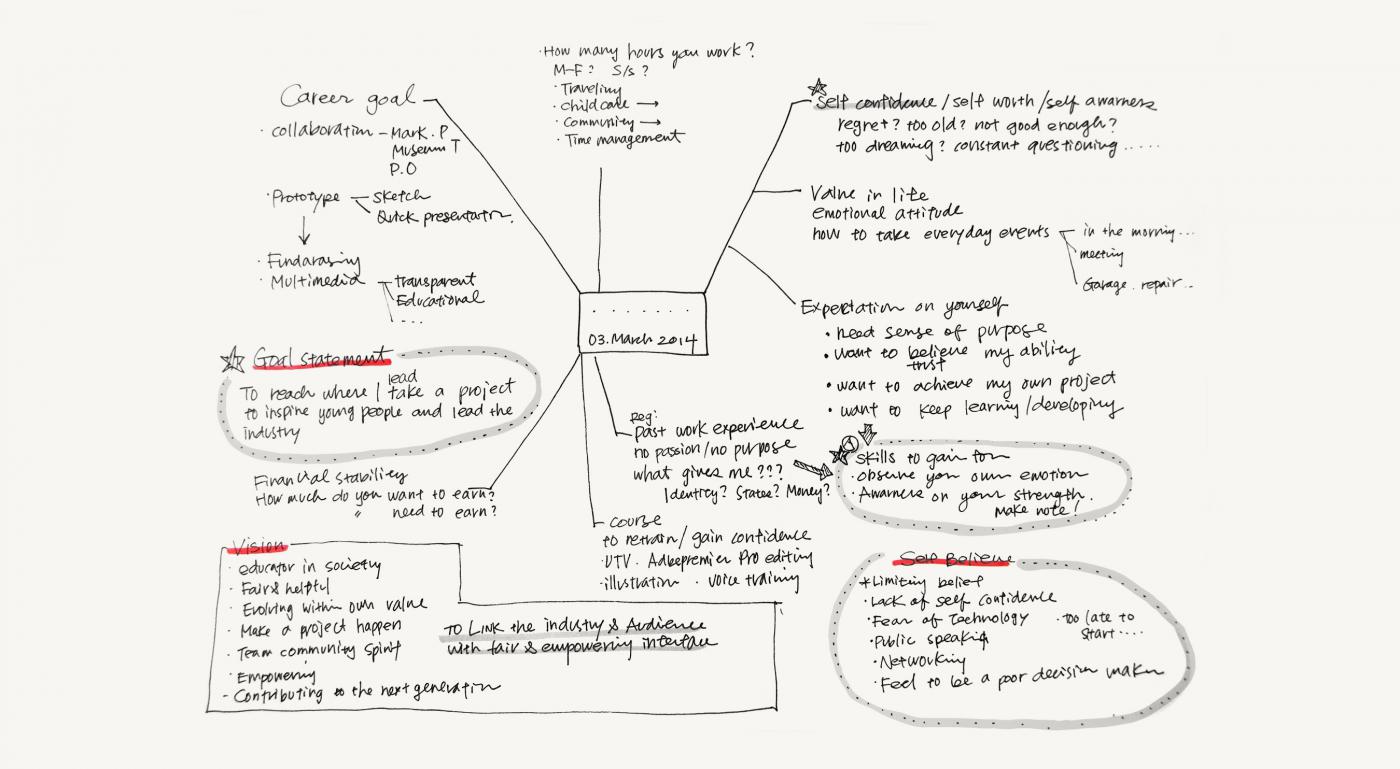 · How many hours you work?
M-F? S/s?
· Traveling
· Childcare →
· Community →
· Time management
Career goal
· collaboration - Mark. P
Museum T
P.O
· Prototype - Sketch
Quick presentation.
· Findarasing
· Multimedia - transparent
Educational
. . .
Goal statement
lead
To reach where I take a project
to inspire young people and lead the
industry
Financial stability
How much do you want to earn?
" need to earn?
Vision
· educator in society
· Fair & helpful
· Evolving within own value
· Make a project happen
· Team community spirit
· Empowering
- Contributing to the next generation
TO LINK the industry & Audience
with fair & empowering interface
. . . . . . .
03. March 2014
Self confidence / self worth / self awarness
regret? too old? not good enough?
too dreaming? constant questioning .....
Value in life
emotional attitude
how to take everyday events - in the morning ...
meeting
Garage . repair ..
Expectation on yourself
• need sense of purpose
• want to believe my ability
trust
• want to achieve my own project
• want to keep learning/developing
reg:
past work experience
no passion/no purpose
what gives me ???
Identity? States? Money?
1
Skills to gain for
· observe your own emotion
· Awarness on your strength.
make note!
course
to retrain/ gain confidence
· UTV . Adobepremier Pro editing
· illustration . voice training
Self Believe
* Limiting belief
· Lack of self confidence
· Fear of Technology · Too late to
start ....
· Public speaking
· Networking
· Feel to be a poor decision maker